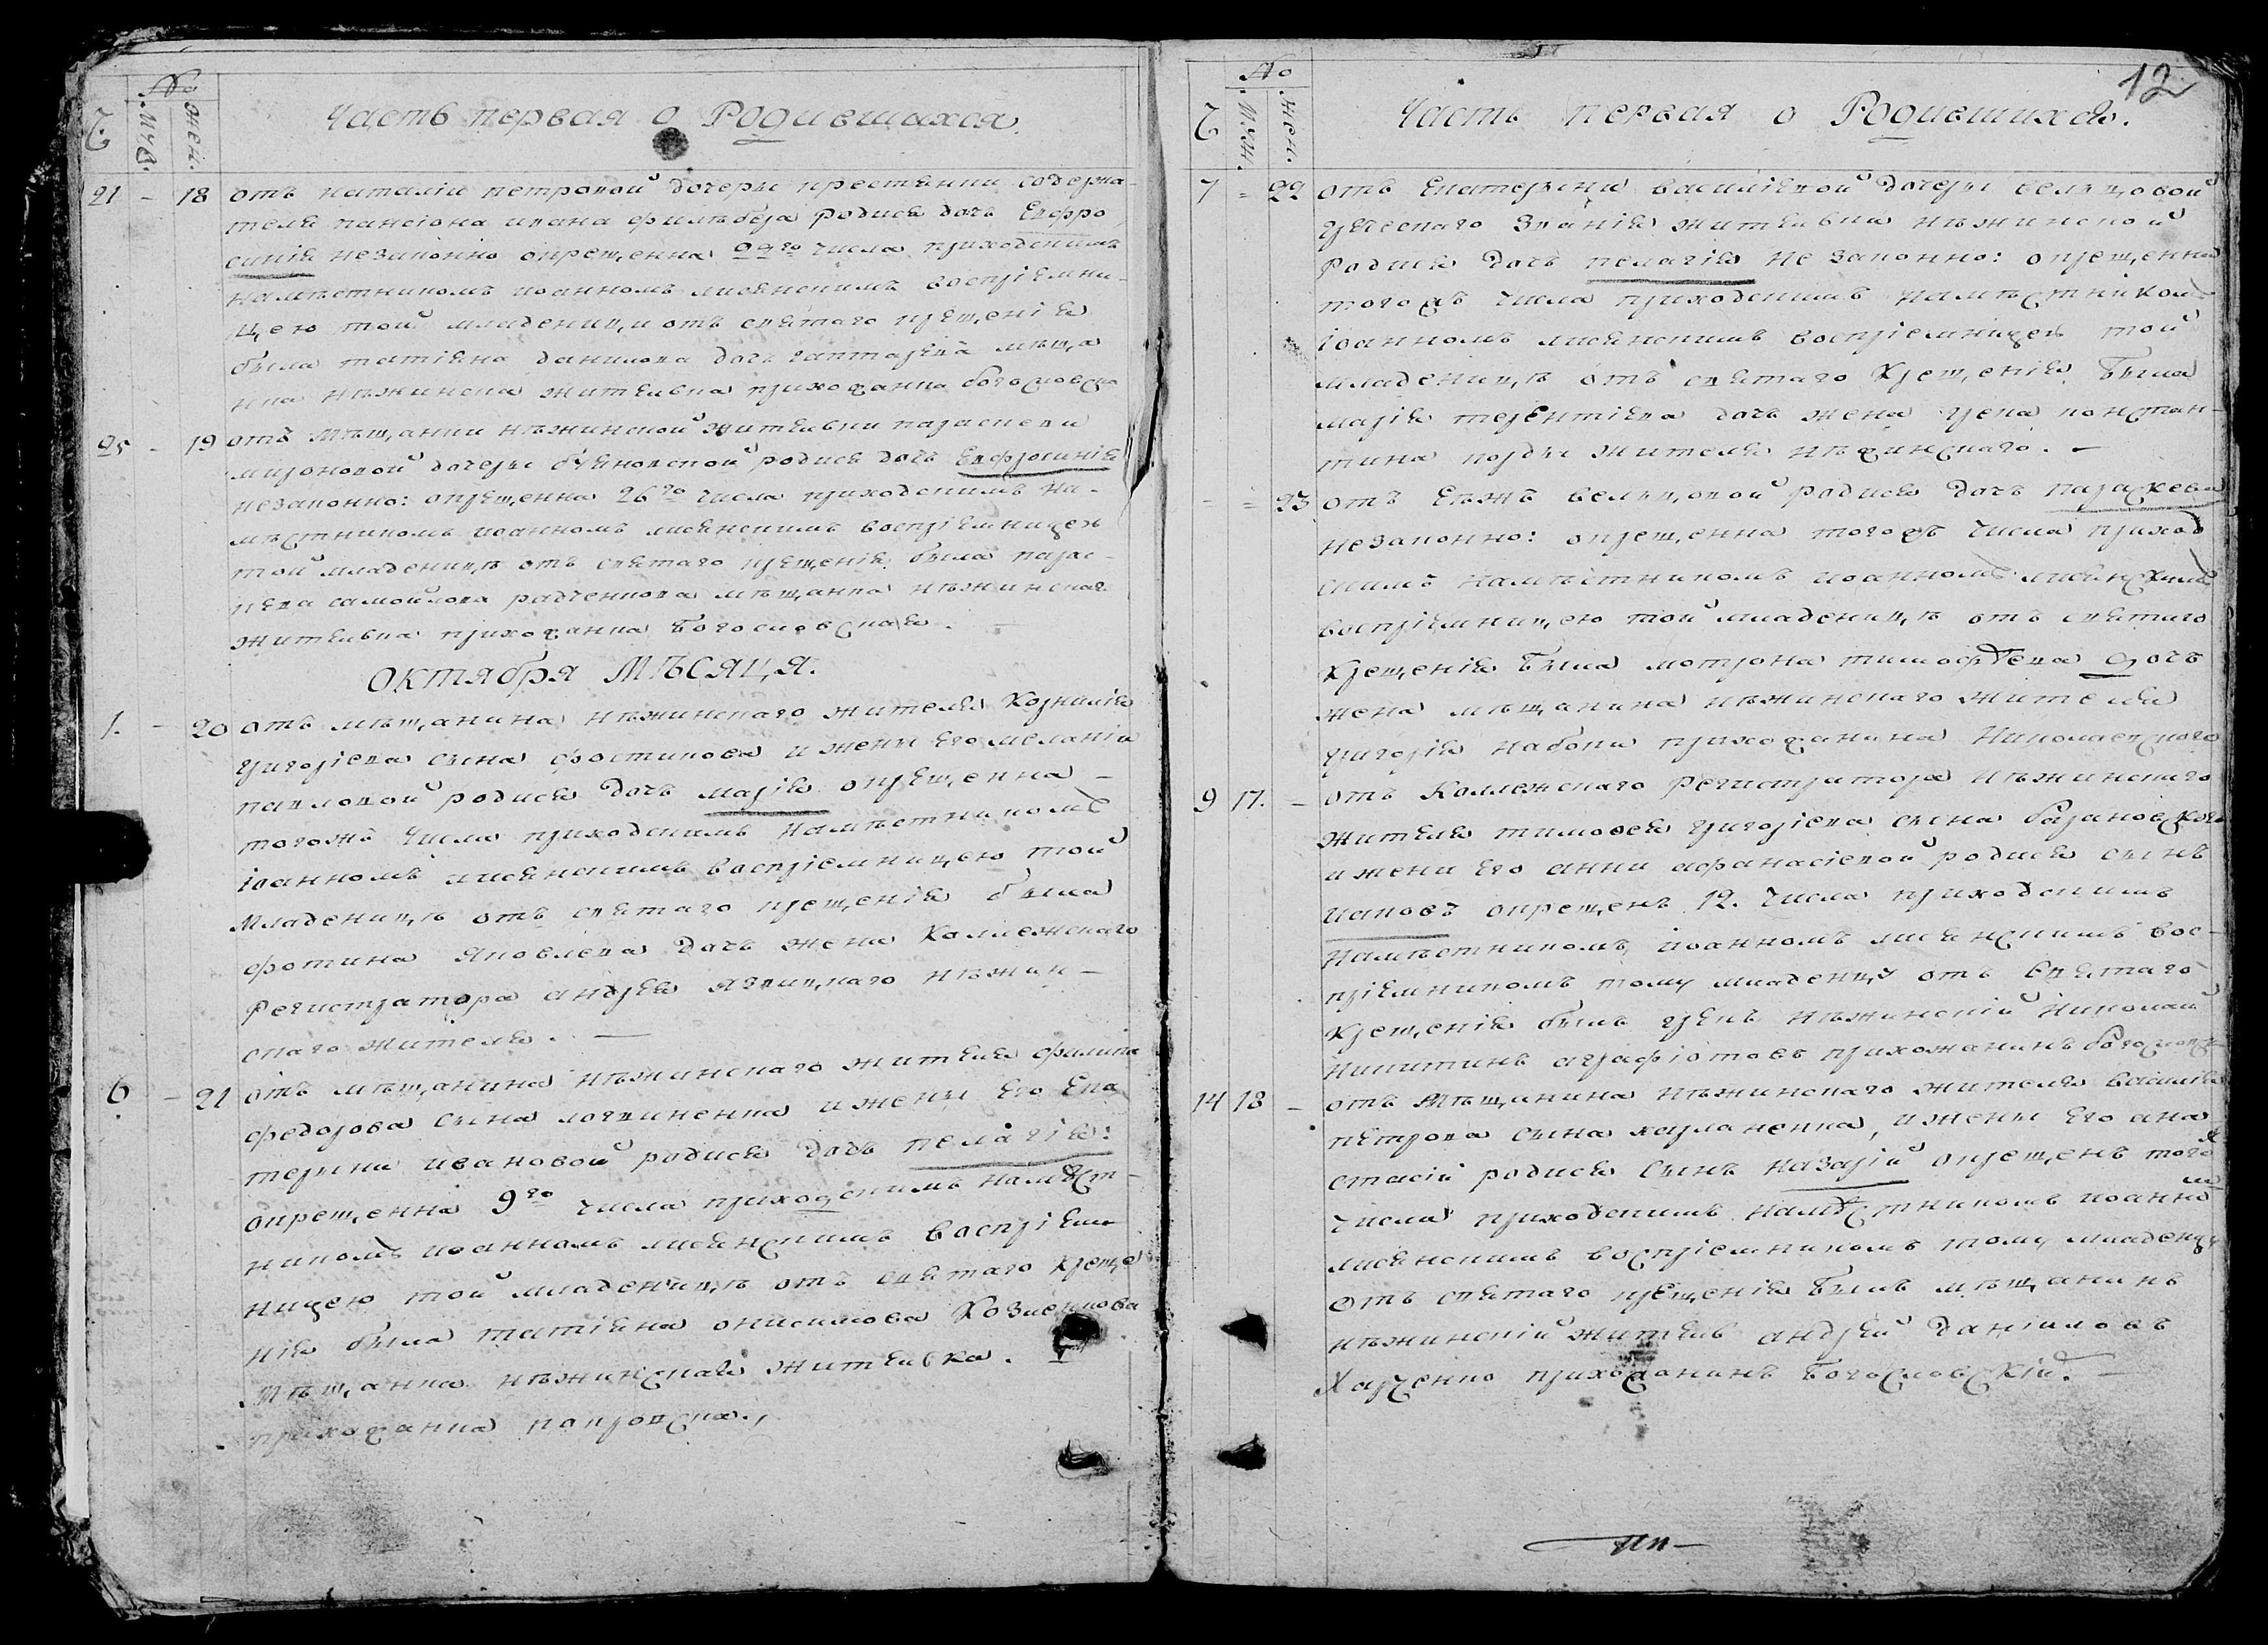 №
Ч. муж. жен.
Часть первая о Родившихся.
21 - 18 отъ наталіи петровой дочери крестянки содержа-
теля пансіона ивана фильбера родися дочь Евфро
синія незаконно окрещенна 22го числа приходскимъ
намѣстникомъ иоанномъ лисянскимъ воспріемни-
цею той младеницѣ отъ святаго крещенія
была татіяна данилова дочь мѣща
нка нѣжинска жителька прихожанка богословска
25 - 19 отъ мѣщанки нѣжинской жительки параскеви
мироновой дочеры родися дочь Евфросинія
незаконно: окрещенна 26го числа приходскимъ на-
мѣстникомъ иоанномъ лисянскимъ воспріемницею
той младеницѣ отъ святаго крещенія была парас-
кева самойлова радченкова мѣщанка нѣжинская
жителька прихожанка Богословская. -
октября мѣсяця.
1. - 20 отъ мѣщанина нѣжинскаго жителя Корнилія
григоріева сына фостикова и жены его меланіи
павловой родися дочь марія окрещенна -
тогожъ числа приходскимъ намѣстникомъ
іоанномъ лисянскимъ воспріемницею той
младеницѣ отъ святаго крещенія была
фотина яковлева дочь жена Коллежскаго
Регистратора андрея нѣжин-
скаго жителя. —
6 - 21 отъ мѣщанина нѣжинскаго жителя филипа
федорова сына логвиненка и жены его Ека
терини ивановой родися дочь пелагія:
окрещенна 9го числа приходскимъ намѣст-
никомъ иоанномъ лисянскимъ воспріем
ницею той младеницѣ отъ святаго креще
нія была татіяна онисимова Козленкова
мѣщанка нѣжинская жителька.
прихожанка покровска.,
12
№
Ч. муж. жен.
Часть первая о Родившихся.
7 = 22 отъ Екатерыны василіевой дочеры велецовой
греческаго званія жительки нѣжинской
родися дочь пелагія не законно: окрещенна
тогожъ числа приходскимъ намѣстникомъ
іоанномъ лисянскимъ воспріемницею той
младеницѣ отъ святаго крещенія была
марія терентіева дочь жена грека констан-
тина корды жителя нѣжинскаго. -
- = 23 отъ Еяжъ велецовой родися дочь параскева
незаконно: окрещенна тогожъ числа приход
скимъ намѣстникомъ иоанномъ лисянскимъ
воспріемницею той младеницѣ отъ святаго
крещенія была мотрона тимофѣева дочь
жена мѣщанина нѣжинскаго жителя
григорія набоки прихожанина Николаевского
9 17. - отъ Коллежскаго Регистратора нѣжинскаго
жителя тимофея григоріева сына базановского
и жени его анни афанасіевой родися сынъ
иаковъ окрещенъ 12. числа приходскимъ
намѣстникомъ, іоанномъ лисянскимъ вос-
пріемникомъ тому младенцу отъ святаго
крещенія былъ грекъ нѣжинскій Николай
Никитинъ аграфіотовъ прихожанинъ богословск
14 18 - отъ мѣщанина нѣжинскаго жителя василія
петрова сына хауланенка, и жены его ана
стасіи родися сынъ назарій окрещенъ тогож
числа приходскимъ намѣстникомъ иоанномъ
лисянскимъ воспріемникомъ тому младенцу
отъ святаго крещенія былъ мѣщанинъ
нѣжинскій житель андрей даніиловъ
Харченко прихожанинъ Богословскій. -